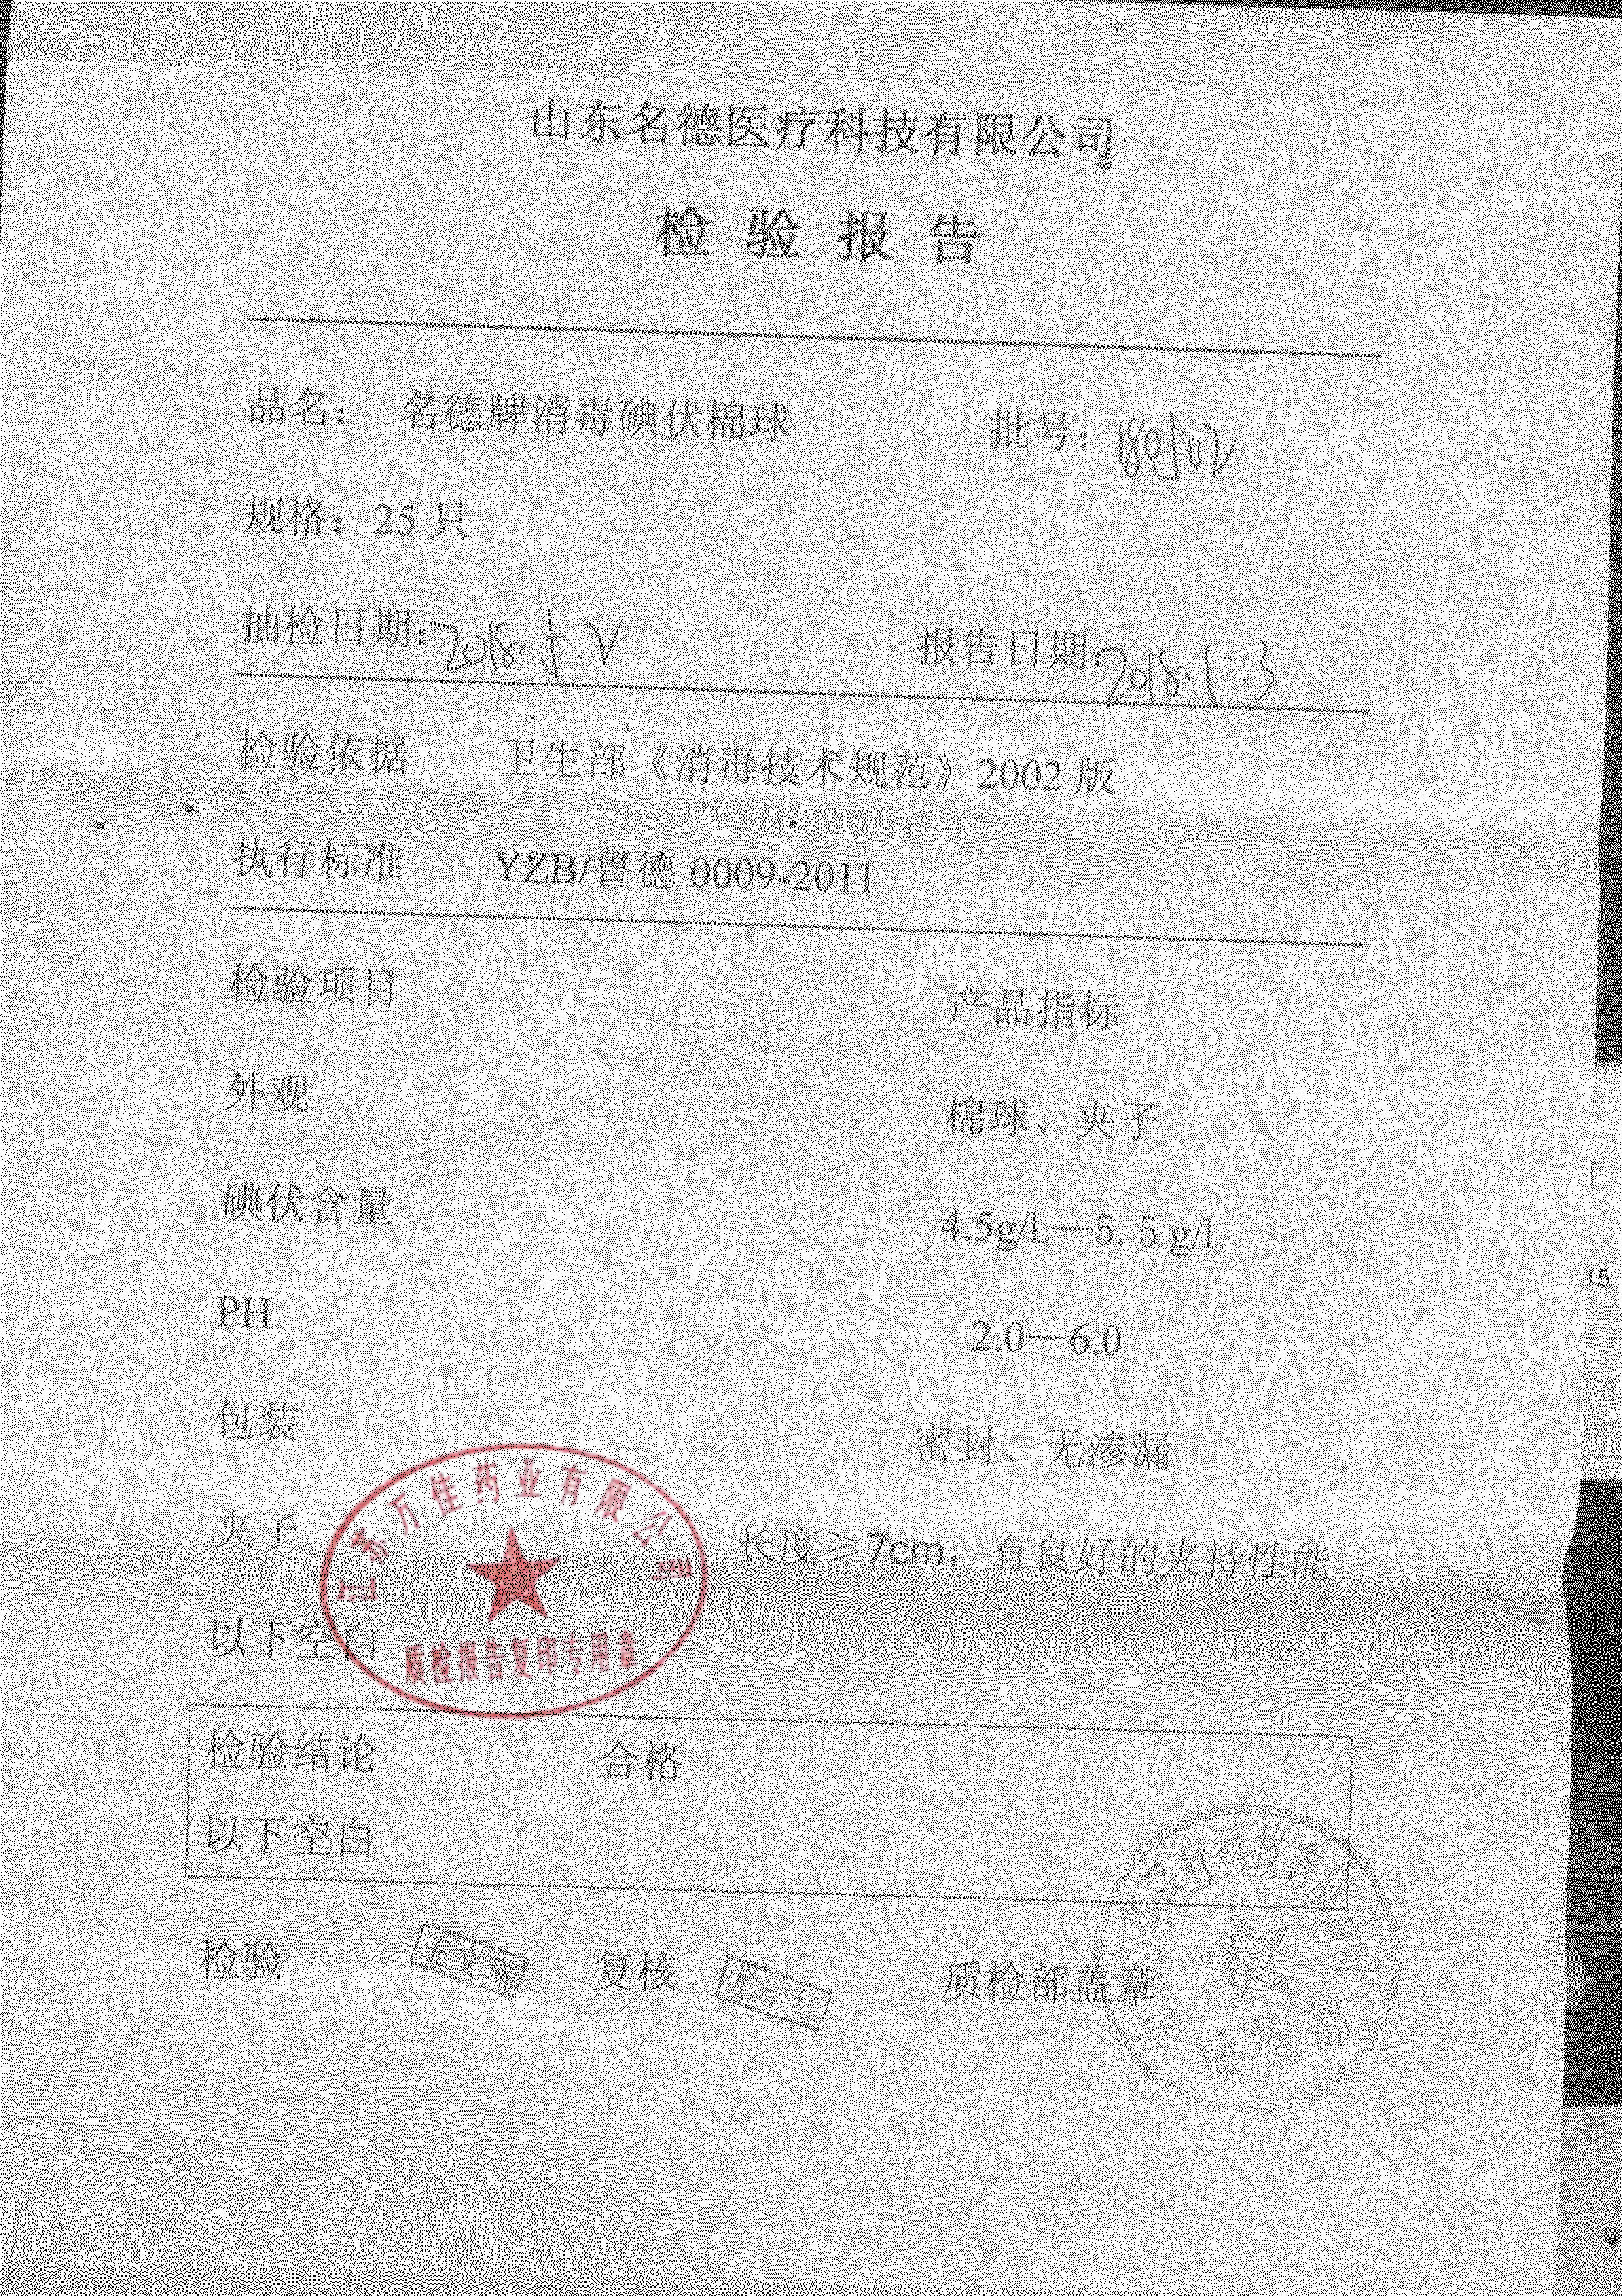 山东名德医疗科技有限公司
检验报告
品名： 名德牌消毒碘伏棉球 批号：180502
规格：25 只
抽检日期：2018.5.2 报告日期：2018.5.3
检验依据 卫生部《消毒技术规范》2002 版
执行标准 YZB/鲁德 0009-2011
检验项目 产品指标
外观 棉球、夹子
碘伏含量 4.5g/L—5. 5 g/L
PH 2.0—6.0
包装 密封、无渗漏
夹子 长度≥7cm，有良好的夹持性能
以下空白
江苏万佳药业有限公司
质检报告复印专用章
检验结论 合格
以下空白
检验 王文瑞 复核 尤翠红 质检部盖章
山东名德医疗科技有限公司
质检部
15